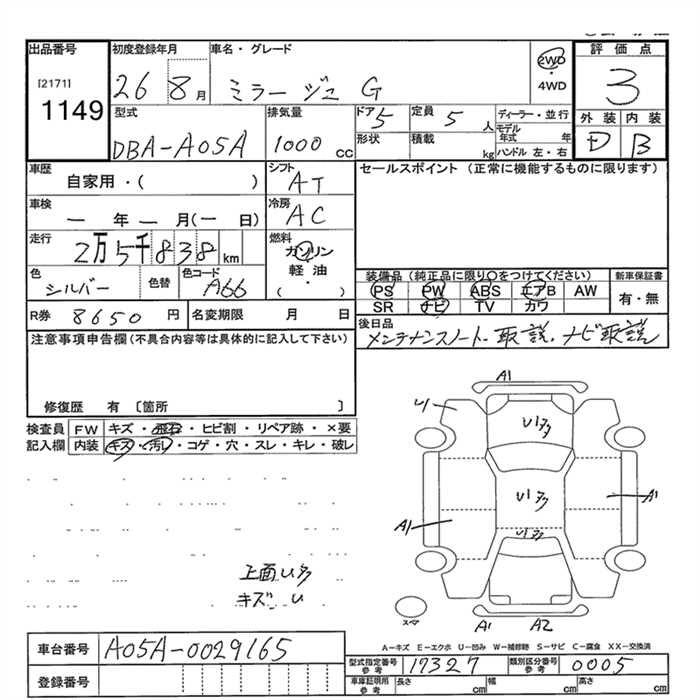 出品番号 初度登録年月 車名・グレード 評価点
[2171] 26 8月 ミラージュ G 2WD 3
1149 ・4WD
型式 排気量 ドア5 定員 5人 ディーラー・並行 外装 内装
DBA-A05A 1000cc 形状 積載 kg モデル年式 年 D B
ハンドル 左・右
車歴 シフト セールスポイント (正常に機能するものに限ります)
自家用・( ) AT
車検 冷房
ー年ー月(ー日) AC
走行 燃料
2万5千838km ガソリン
色 色替 色コード 軽油 装備品(純正品に限り○をつけてください) 新車保証書
シルバー A66 ( ) PS PW ABS エアB AW 有・無
SR ナビ TV カワ
R券 8650円 名変期限 月 日 後日品
注意事項申告欄(不具合内容等は具体的に記入して下さい) メンテナンスノート、取説、ナビ取説
修復歴 有 〔箇所 〕
検査員 FW キズ・飛石・ヒビ割・リペア跡・×要
記入欄 内装 キズ・汚レ・コゲ・穴・スレ・キレ・破レ
A1
U1多
U1多 A1
A1 U1多
上面U多
キズ U
スペア
A1 A2
車台番号 A05A-0029165 A-キズ E-エクボ U-凹み W-補修跡 S-サビ C-腐食 XX-交換済
型式指定番号 参考 17327 類別区分番号 参考 0005
登録番号 車庫証明用 参考 長さ cm 幅 cm 高さ cm